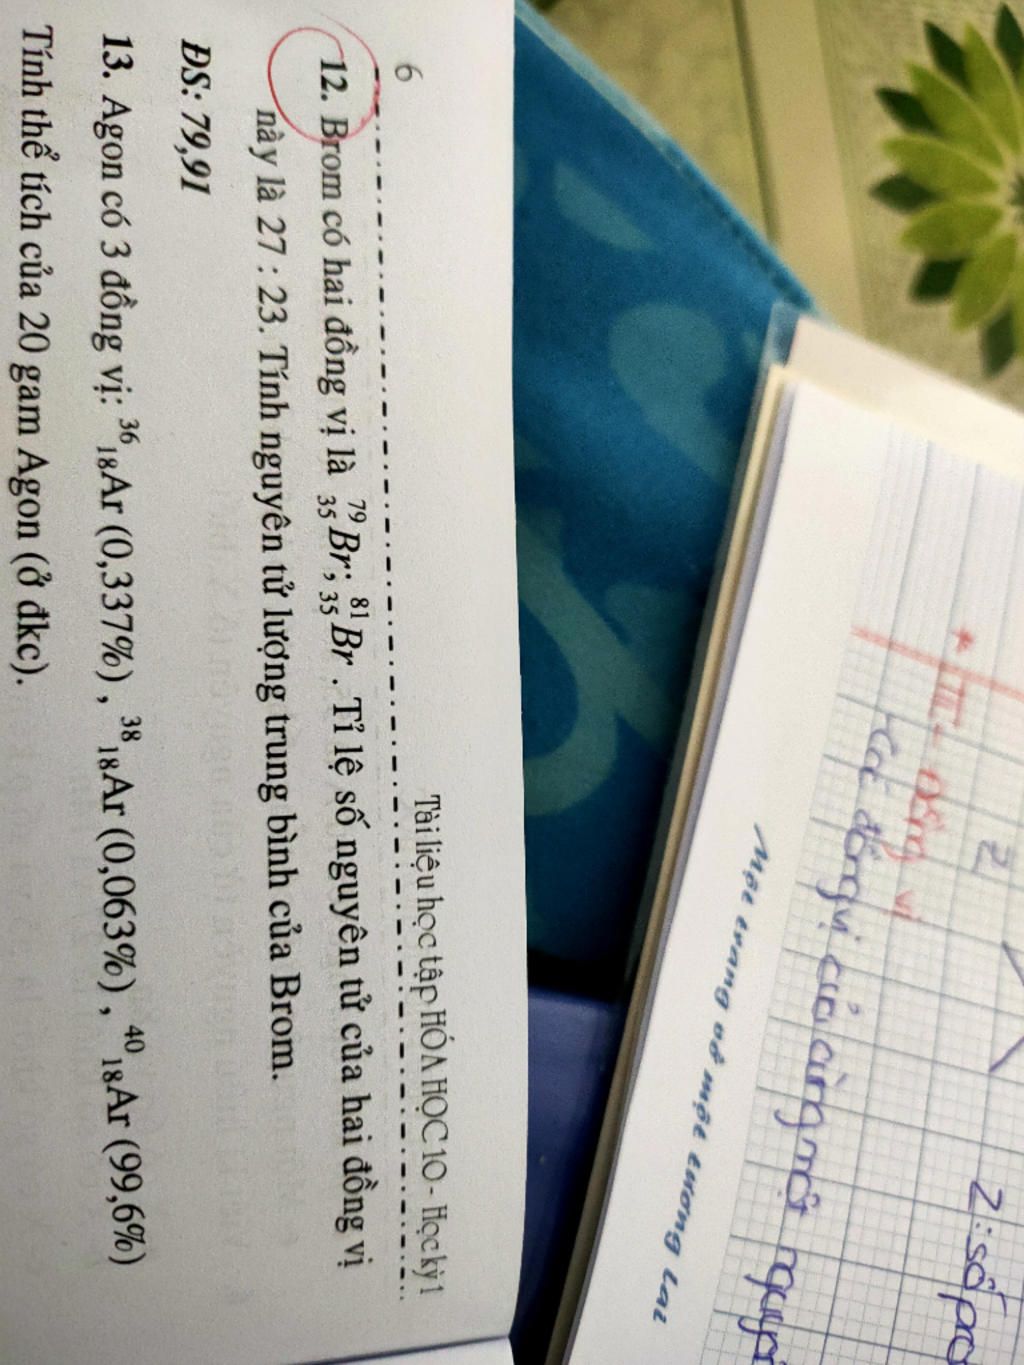 6
Tài liệu học tập HÓA HỌC 10 - Học kỳ 1
12. Brom có hai đồng vị là ⁷⁹₃₅Br; ⁸¹₃₅Br . Tỉ lệ số nguyên tử của hai đồng vị
này là 27 : 23. Tính nguyên tử lượng trung bình của Brom.
ĐS: 79,91
13. Agon có 3 đồng vị: ³⁶₁₈Ar (0,337%) , ³⁸₁₈Ar (0,063%) , ⁴⁰₁₈Ar (99,6%)
Tính thể tích của 20 gam Agon (ở đkc).
Z
Z: số pro
* III- Đồng vị
- Các đồng vị của cùng một nguyê
Một trang vở một tương lai